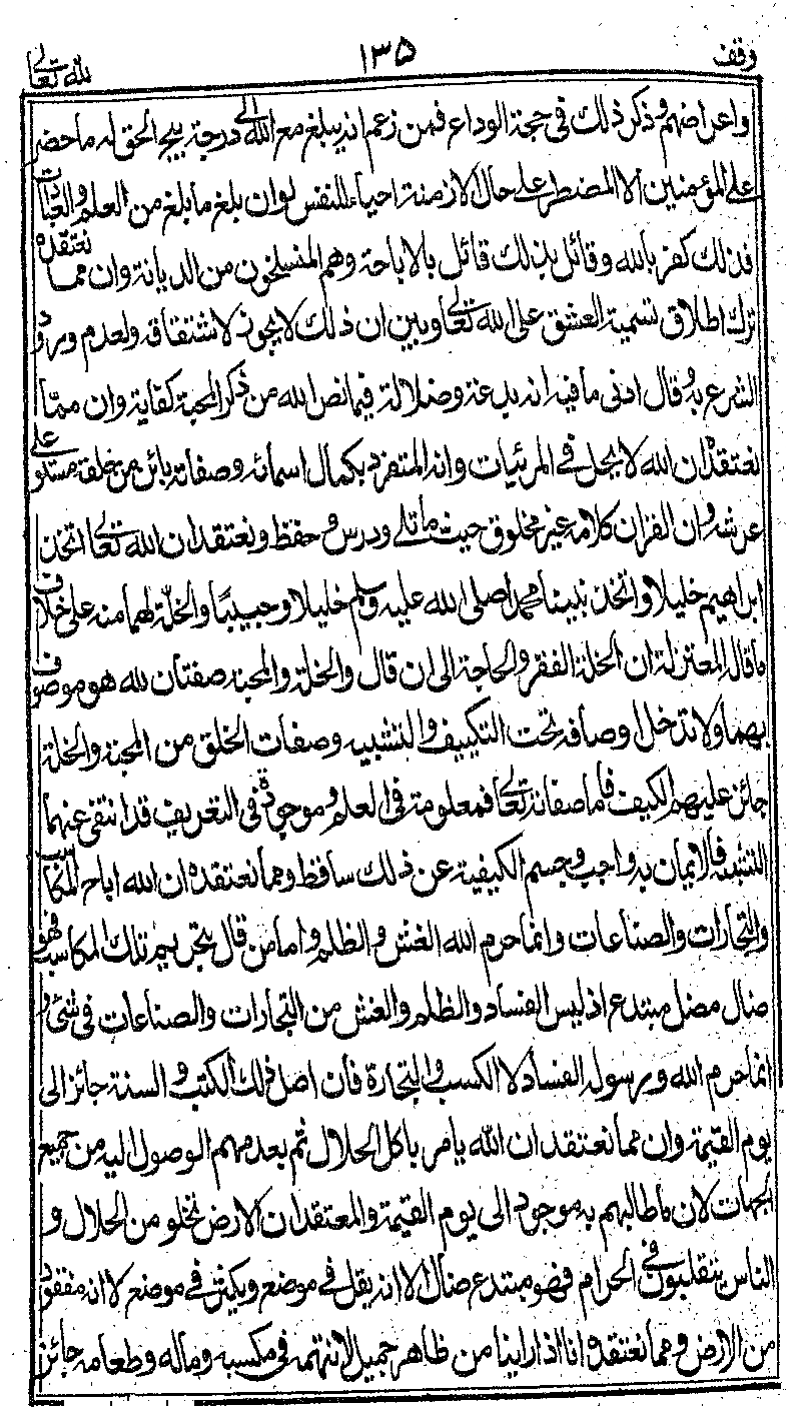 وقف ١٣٥ لله تعالى
واعراضهم وذكر ذلك فى حجة الوداع فمن زعم انه يبلغ مع الله الى درجة يبيح الحق له ما حضر
على المؤمنين الا المضطر على حال الازمنة احياء للنفس لو وان بلغ ما بلغ من العلم والعبادات
فذلك كفر بالله وقائل بذلك قائل بالاباحة وهم المنسلخون من الديانة وان مما نعتقده
ترك اطلاق تسمية العشق على الله تعالى وبين ان ذلك لا يجوز لاشتقاقه ولعدم ورود
الشرع به وقال ادنى ما فيه انه بدعة وضلالة فيما نص الله من ذكر المحبة كفاية وان مما
نعتقد ان الله لا يحل فى المرئيات وانه المتفرد بكمال اسمائه وصفاته بائن من خلقه مستو على
عرشه وان القران كلامه غير مخلوق حيث ما تلى ودرس وحفظ ونعتقد ان الله تعالى اتخذ
ابراهيم خليلا واتخذ نبينا محمدا صلى الله عليه وسلم خليلا وحبيبًا والخلة لهما منه على خلاف
ما قاله المعتزلة ان الخلة الفقر والحاجة الى ان قال والخلة والمحبة صفتان لله هو موصوف
بهما ولا تدخل اوصافه تحت التكييف والتشبيه وصفات الخلق من المحبة والخلة
جائز عليهم الكيف فاما صفاته تعالى فمعلومة فى العلم وموجودة فى التعريف قد انتفى عنهما
التشبيه فالايمان به واجب وجسم الكيفية عن ذلك ساقط ومما نعتقده ان الله اباح المكاسب
والتجارات والصناعات وانما حرم الله الغش والظلم واما من قال بتحريم تلك المكاسب فهو
ضال مضل مبتدع اذ ليس الفساد والظلم والغش من التجارات والصناعات فى شئ و
انما حرم الله ورسوله الفساد لا الكسب والتجارة فان اصل ذلك الكتب والسنة جائز الى
يوم القيمة وان مما نعتقد ان الله يامر باكل الحلال ثم بعدمهم الوصول اليه من جميع
الجهات لان ما طالبهم به موجود الى يوم القيمة والمعتقد ان الارض تخلو من الحلال و
الناس يتقلبون فى الحرام فهو مبتدع ضال الا انه يقل فى موضع ويكثر فى موضع لا انه مفقود
من الارض ومما نعتقده انا اذا راينا من ظاهر جميل لا نتهمه فى مكسبه وماله وطعامه جائز